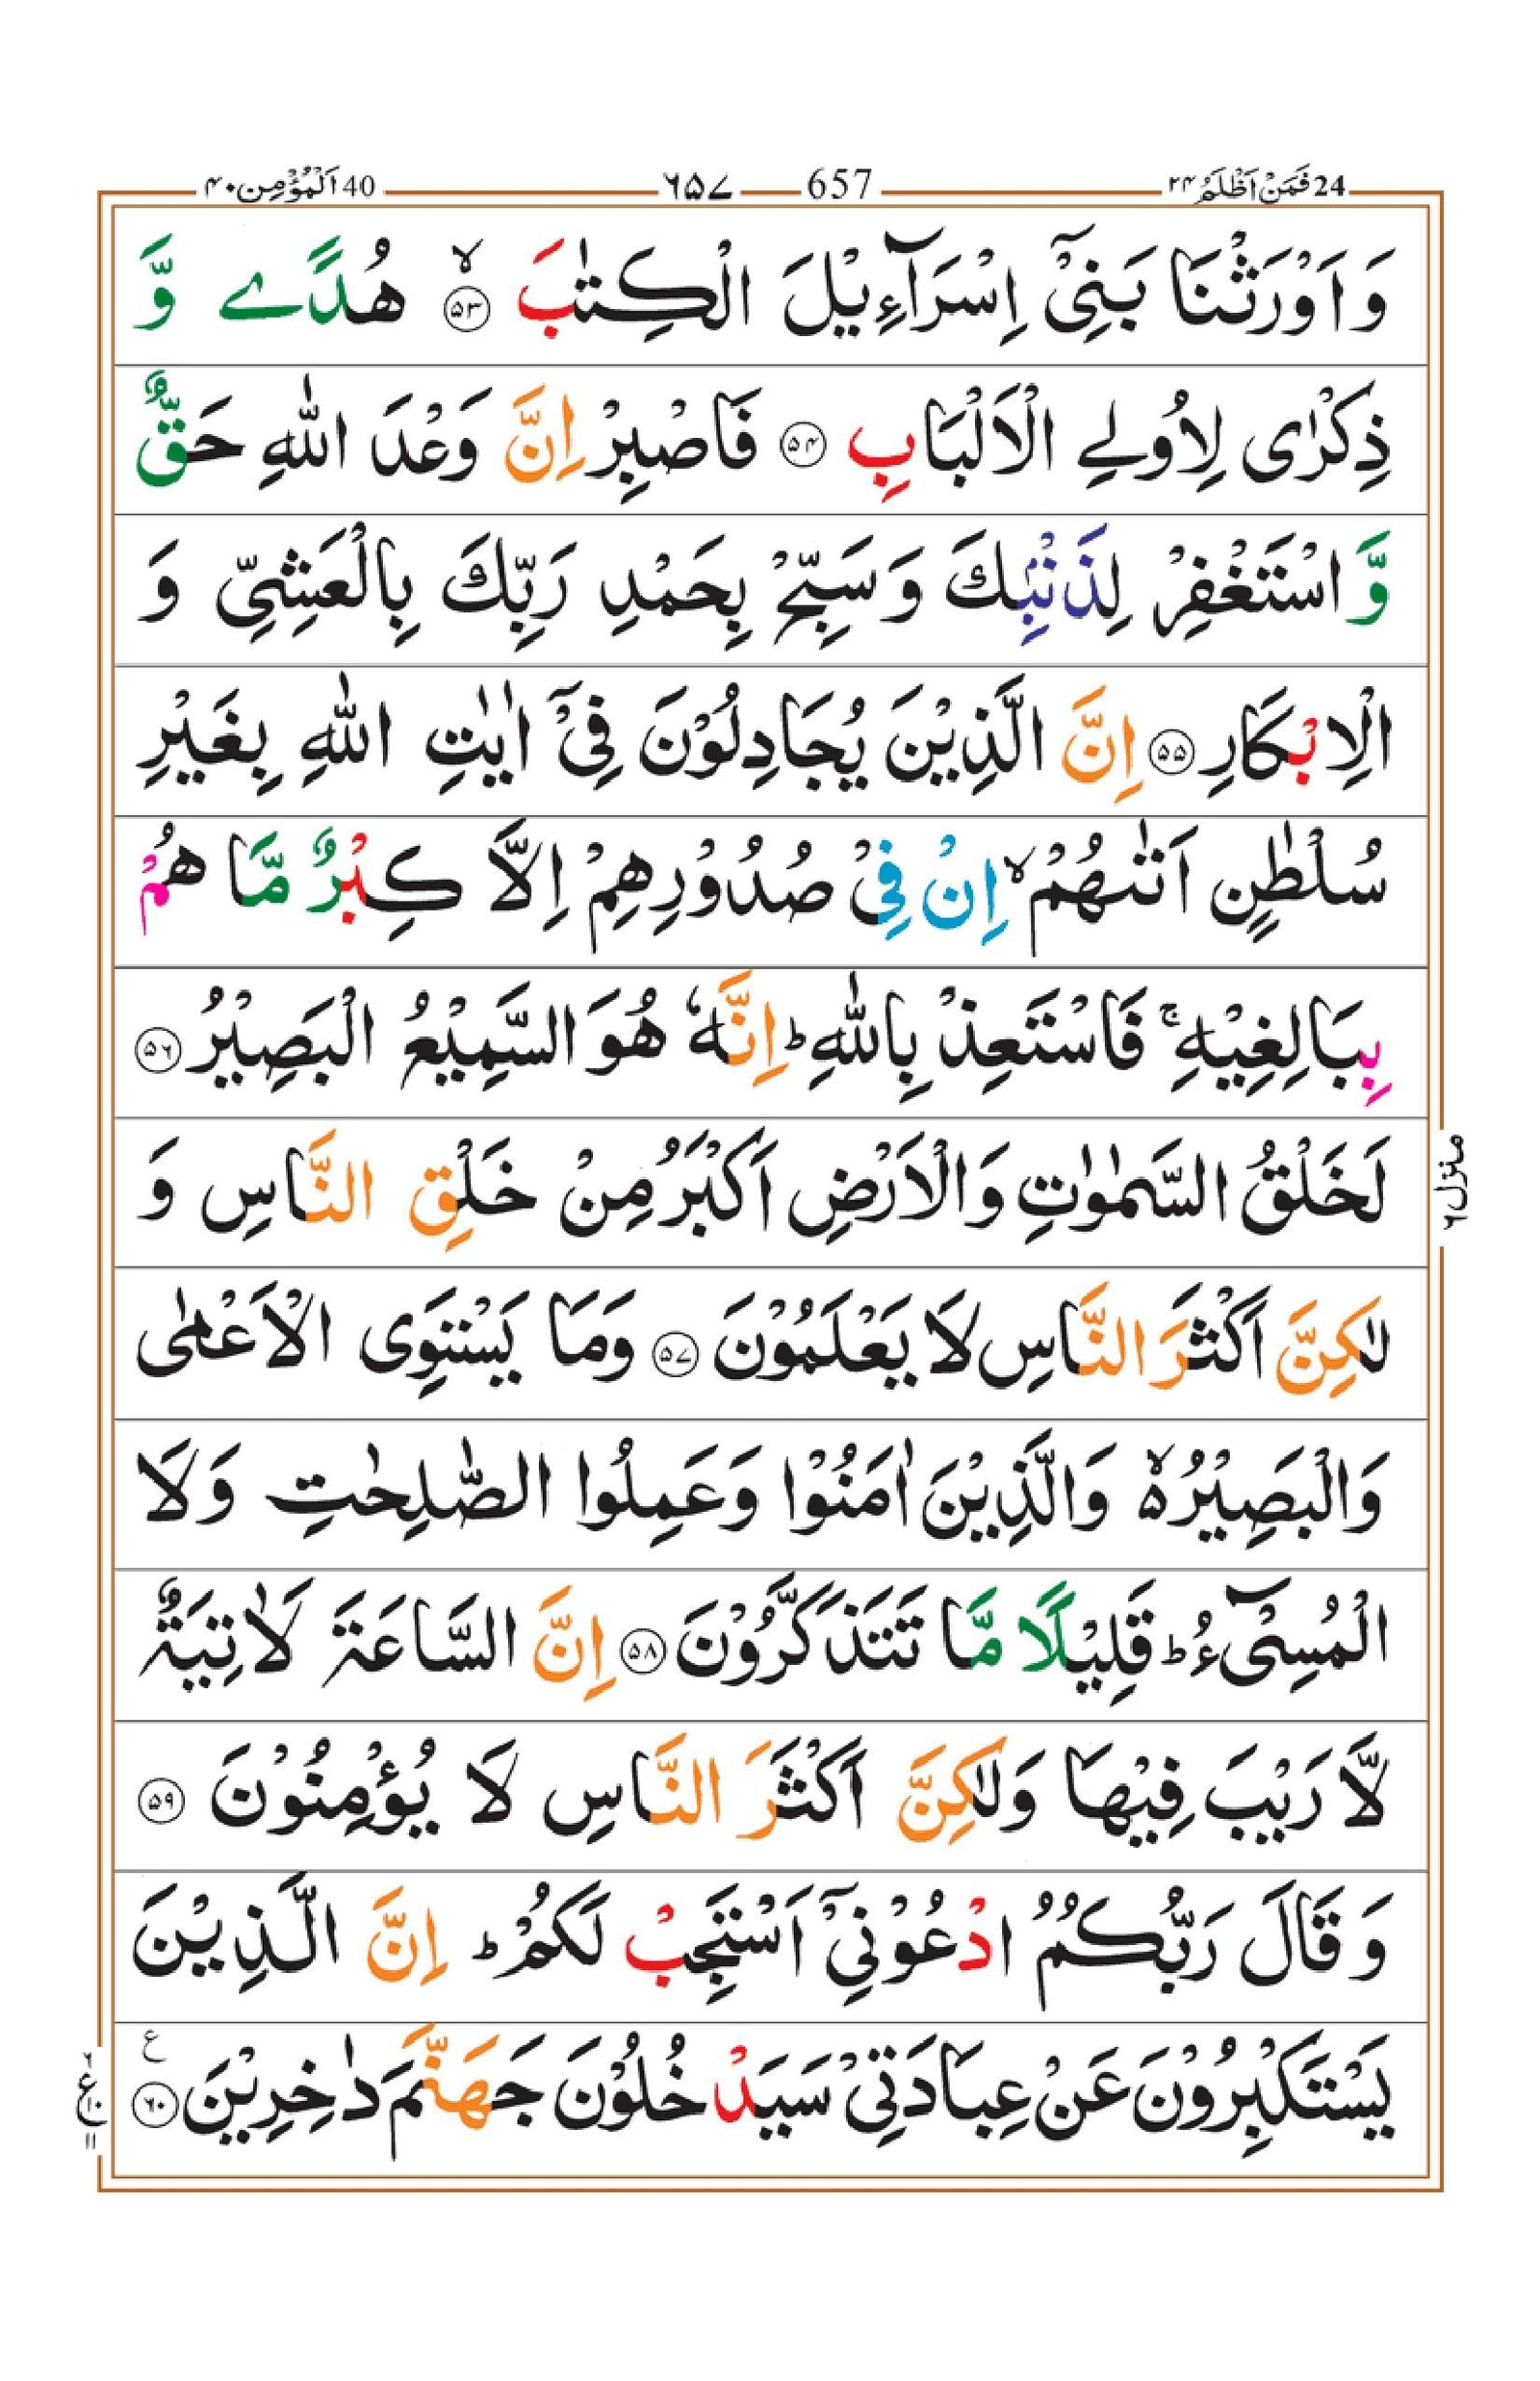 24 فَمَنْ اَظْلَمُ ۲۴ 657 ۶۵۷ 40 اَلْمُؤْمِن ۴۰
وَ اَوْرَثْنَا بَنِیْۤ اِسْرَآءِیْلَ الْكِتٰبَ ۙ﴿۵۳﴾ هُدًے وَّ
ذِكْرٰی لِاُولِے الْاَلْبَابِ ﴿۵۴﴾ فَاصْبِرْ اِنَّ وَعْدَ اللّٰهِ حَقٌّ
وَّ اسْتَغْفِرْ لِذَنْۢبِكَ وَ سَبِّحْ بِحَمْدِ رَبِّكَ بِالْعَشِیِّ وَ
الْاِبْكَارِ ﴿۵۵﴾ اِنَّ الَّذِیْنَ یُجَادِلُوْنَ فِیْۤ اٰیٰتِ اللّٰهِ بِغَیْرِ
سُلْطٰنٍ اَتٰىهُمْ ۙ اِنْ فِیْ صُدُوْرِهِمْ اِلَّا كِبْرٌ مَّا هُمْ
بِبَالِغِیْهِ ۚ فَاسْتَعِذْ بِاللّٰهِ ؕ اِنَّهٗ هُوَ السَّمِیْعُ الْبَصِیْرُ ﴿۵۶﴾
لَخَلْقُ السَّمٰوٰتِ وَالْاَرْضِ اَكْبَرُ مِنْ خَلْقِ النَّاسِ وَ
لٰكِنَّ اَكْثَرَ النَّاسِ لَا یَعْلَمُوْنَ ﴿۵۷﴾ وَمَا یَسْتَوِی الْاَعْمٰی
وَالْبَصِیْرُ ۙ۬ وَالَّذِیْنَ اٰمَنُوْا وَعَمِلُوا الصّٰلِحٰتِ وَلَا
الْمُسِیْٓءُ ؕ قَلِیْلًا مَّا تَتَذَكَّرُوْنَ ﴿۵۸﴾ اِنَّ السَّاعَةَ لَاٰتِیَةٌ
لَّا رَیْبَ فِیْهَا وَلٰكِنَّ اَكْثَرَ النَّاسِ لَا یُؤْمِنُوْنَ ﴿۵۹﴾
وَ قَالَ رَبُّكُمُ ادْعُوْنِیْۤ اَسْتَجِبْ لَكُمْ ؕ اِنَّ الَّذِیْنَ
یَسْتَكْبِرُوْنَ عَنْ عِبَادَتِیْ سَیَدْخُلُوْنَ جَهَنَّمَ دٰخِرِیْنَ ﴿۶۰﴾ ع
منزل ۶
ع ۱۰ ۱۱